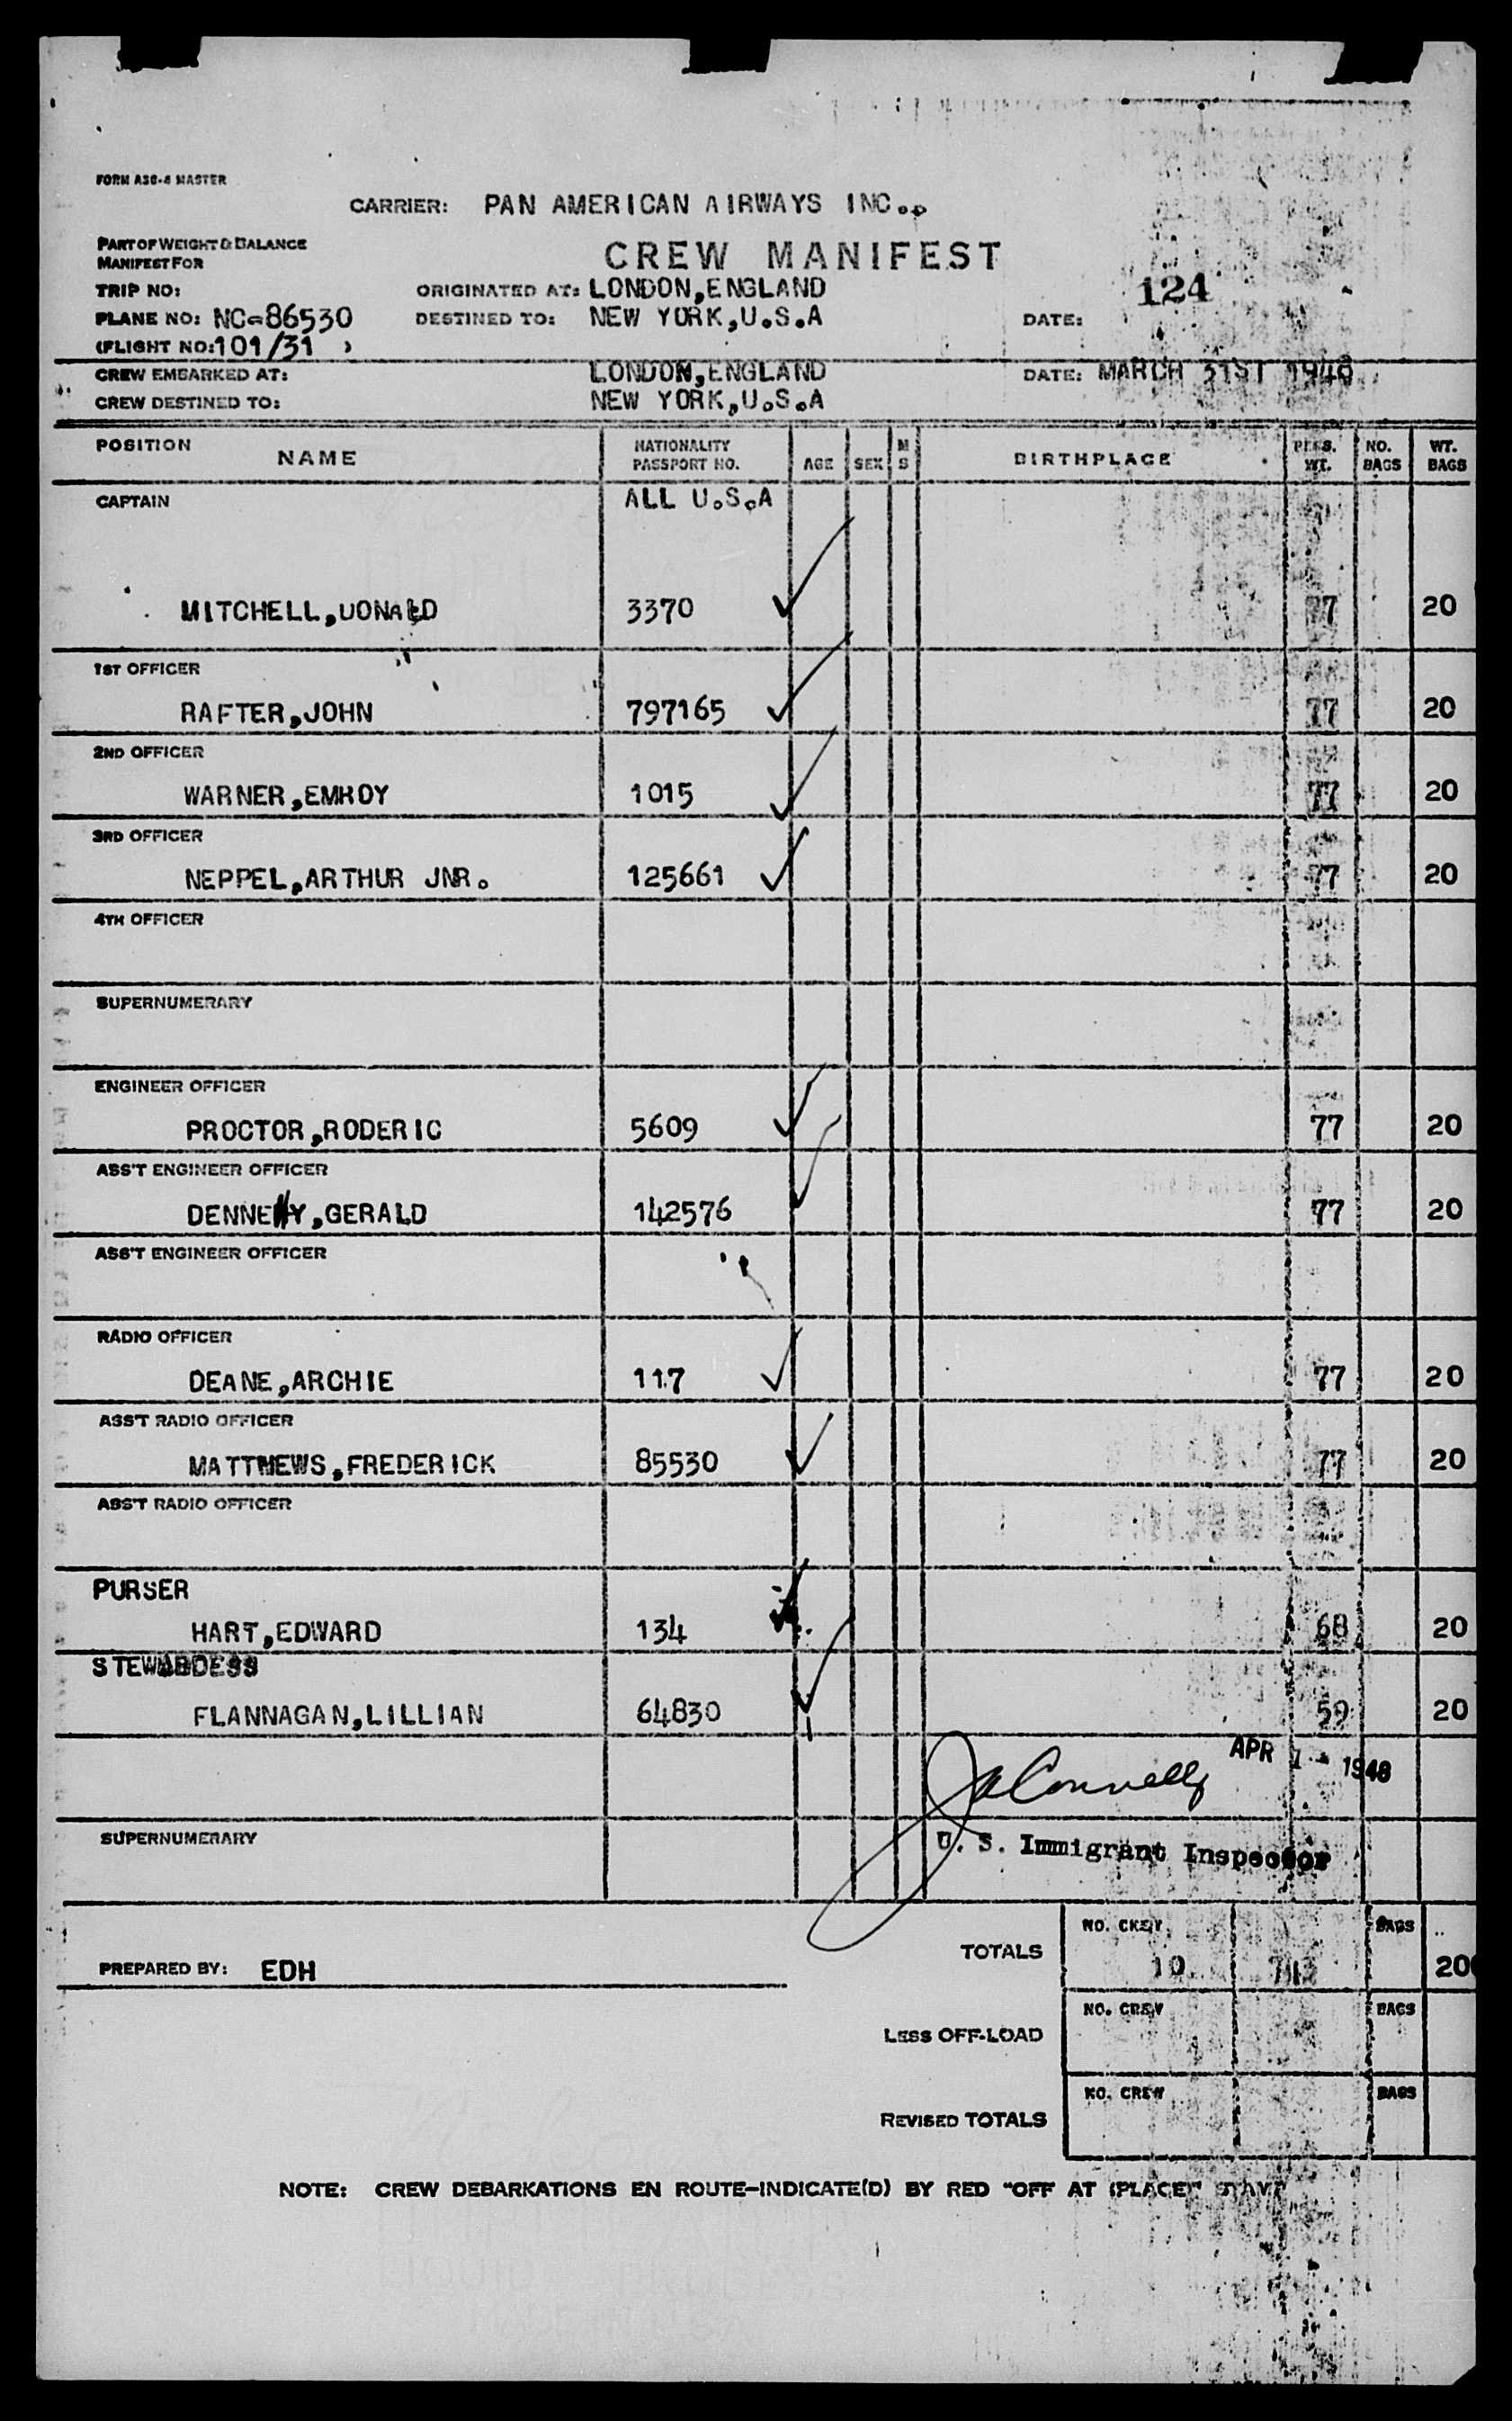 FORM A36-4 MASTER
CARRIER: PAN AMERICAN AIRWAYS INC..
PART OF WEIGHT & BALANCE
MANIFEST FOR
CREW MANIFEST
TRIP NO:
ORIGINATED AT: LONDON,ENGLAND
124
PLANE NO: NC-86530
DESTINED TO: NEW YORK,U.S.A
DATE:
(FLIGHT NO:101/31 )
CREW EMBARKED AT: LONDON,ENGLAND DATE: MARCH 31ST 1948
CREW DESTINED TO: NEW YORK,U.S.A
POSITION NAME NATIONALITY PASSPORT NO. AGE SEX M S BIRTHPLACE PERS. WT. NO. BAGS WT. BAGS
CAPTAIN ALL U.S.A
MITCHELL,DONALD 3370 77 20
1ST OFFICER
RAFTER,JOHN 797165 77 20
2ND OFFICER
WARNER,EMROY 1015 77 20
3RD OFFICER
NEPPEL,ARTHUR JNR. 125661 77 20
4TH OFFICER
SUPERNUMERARY
ENGINEER OFFICER
PROCTOR,RODERIC 5609 77 20
ASS'T ENGINEER OFFICER
DENNEHY,GERALD 142576 77 20
ASS'T ENGINEER OFFICER
RADIO OFFICER
DEANE,ARCHIE 117 77 20
ASS'T RADIO OFFICER
MATTHEWS,FREDERICK 85530 77 20
ASS'T RADIO OFFICER
PURSER
HART,EDWARD 134 68 20
STEWARDESS
FLANNAGAN,LILLIAN 64830 59 20
APR 1 - 1948
U. S. Immigrant Inspector
SUPERNUMERARY
TOTALS NO. CREW 10 BAGS 200
PREPARED BY: EDH
LESS OFF-LOAD NO. CREW BAGS
REVISED TOTALS NO. CREW BAGS
NOTE: CREW DEBARKATIONS EN ROUTE-INDICATE(D) BY RED "OFF AT (PLACE)" STAMP